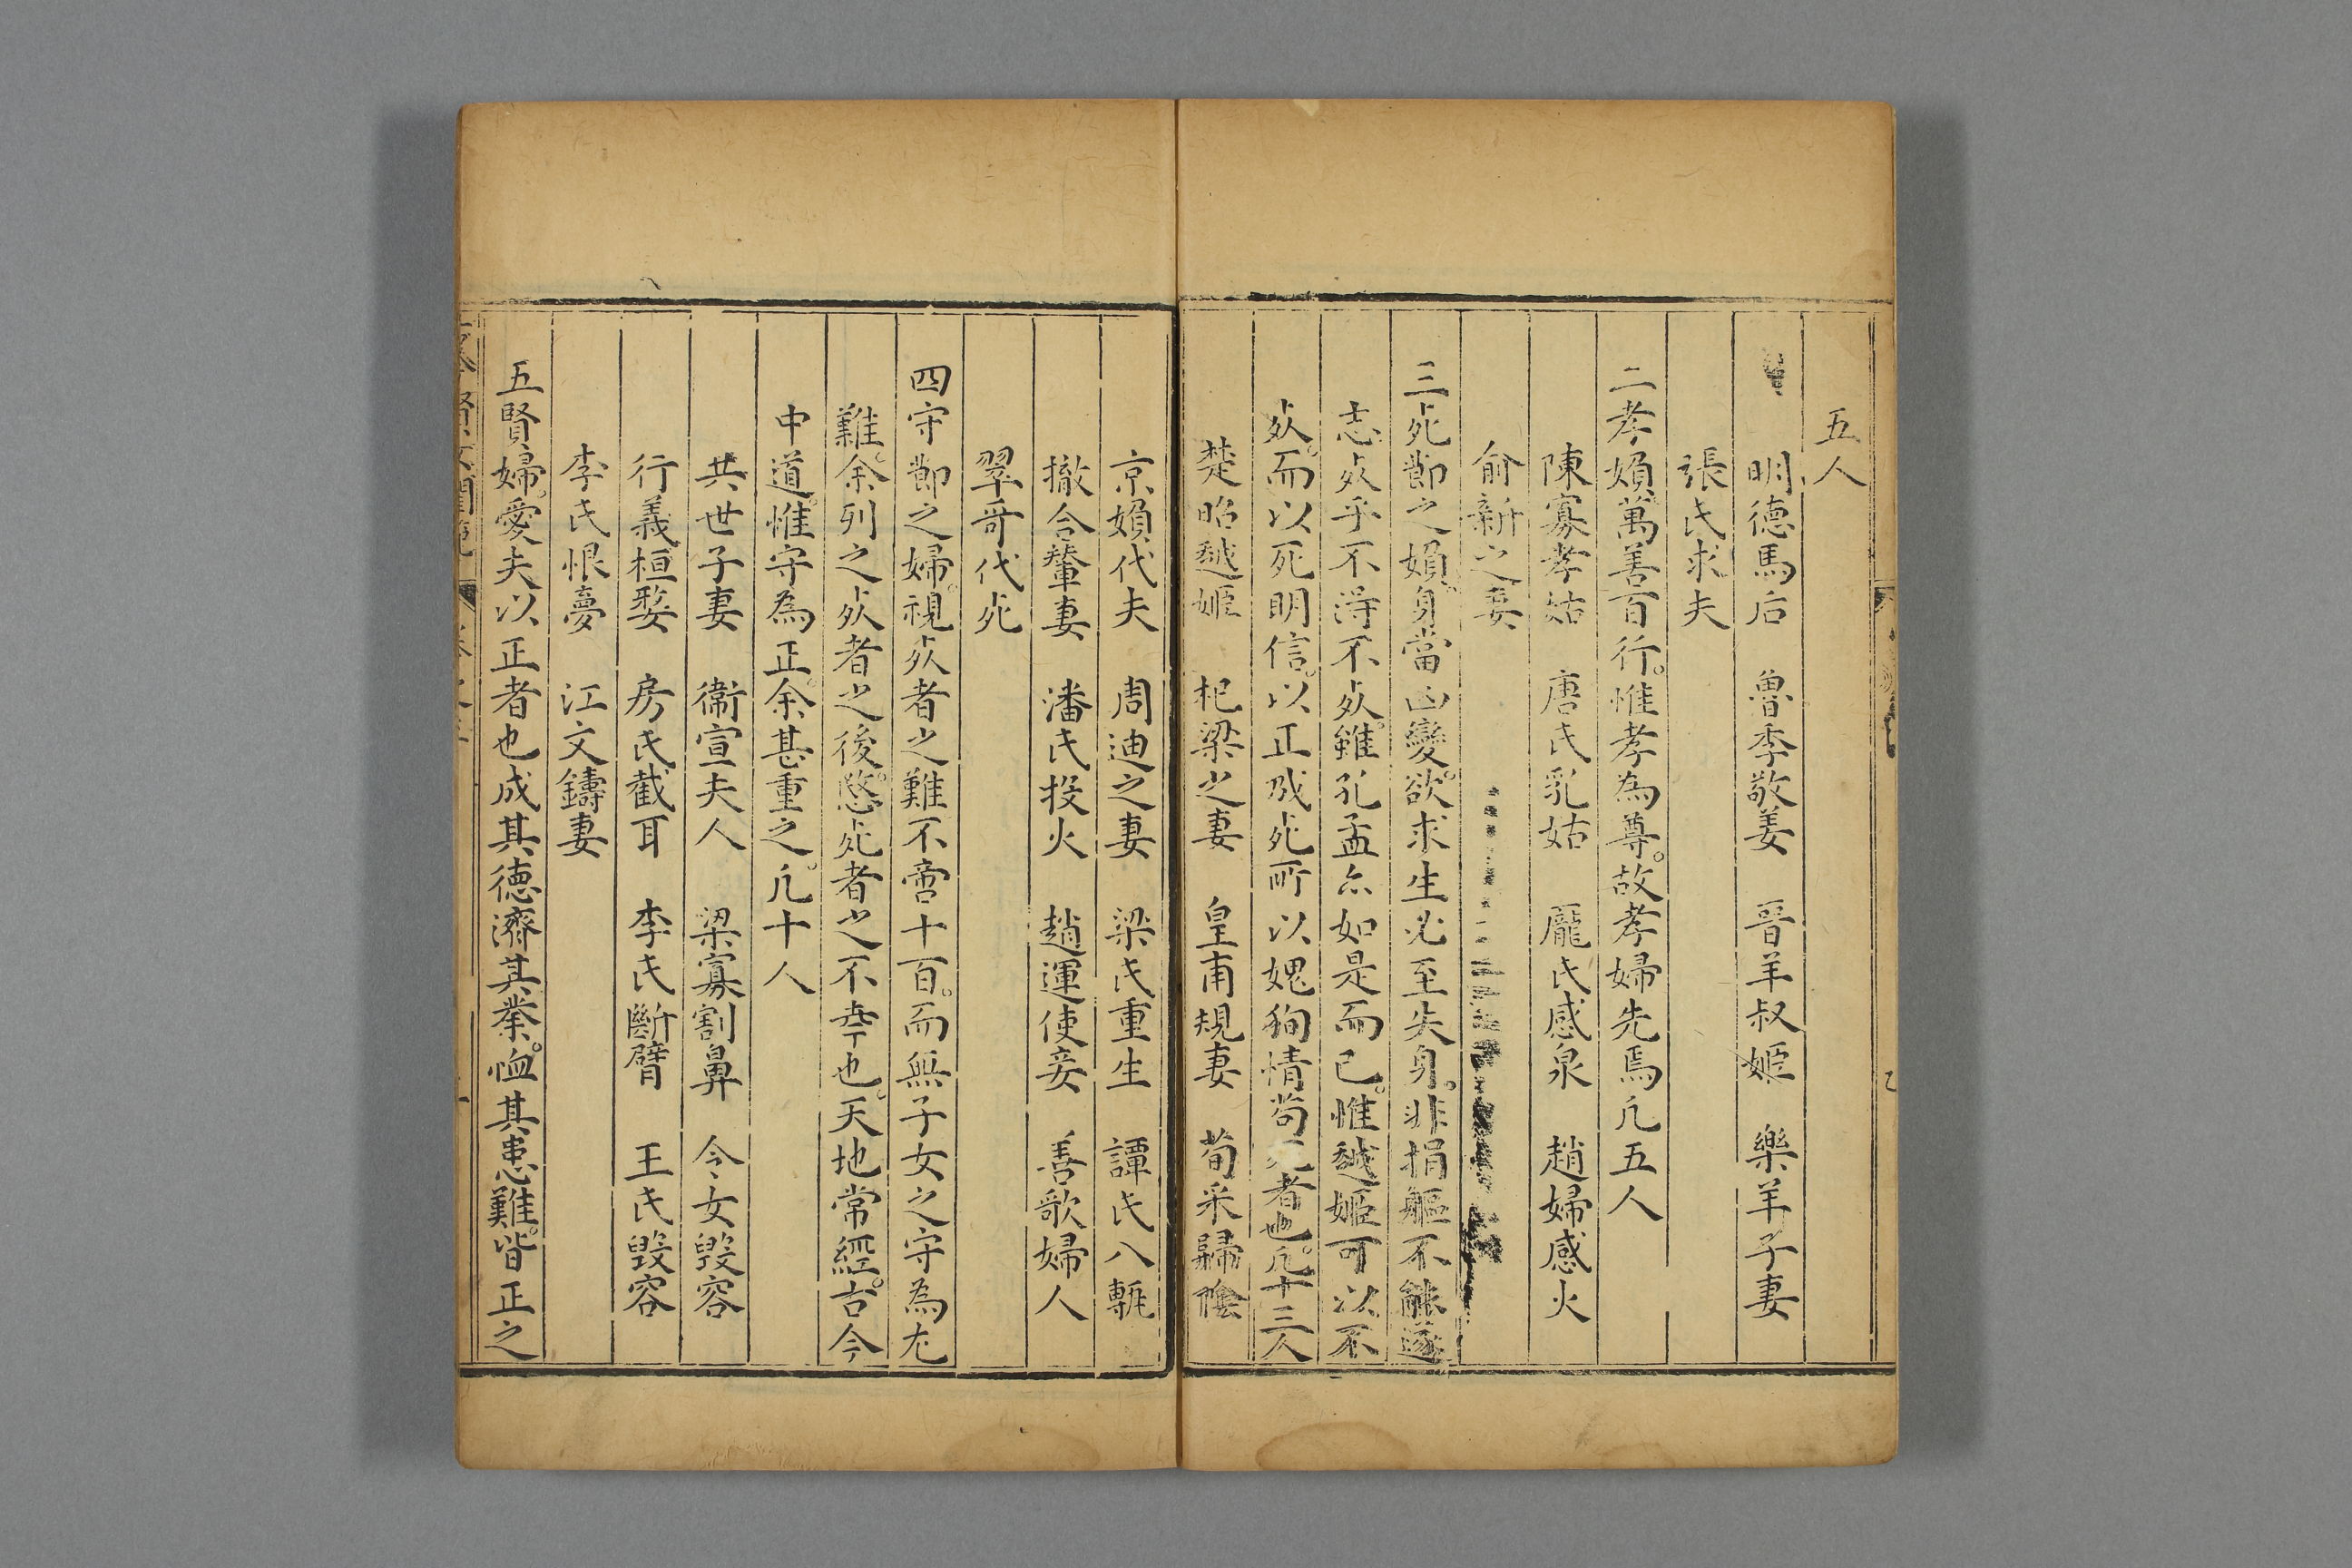 五人
明德馬后　魯季敬姜　晉羊叔姬　樂羊子妻
張氏求夫
二孝婦萬善百行惟孝為尊故孝婦先焉凡五人
陳寡孝姑　唐氏乳姑　龐氏感泉　趙婦感火
俞新之妻
三死節之婦身當凶變欲求生必至失身非捐軀不能遂
志死乎不得不死雖孔孟亦如是而已惟越姬可以不
死而以死明信以正成死所以媿狥情苟死者也凡十三人
楚昭越姬　杞梁之妻　皇甫規妻　荀采歸陰
京婦代夫　周迪之妻　梁氏重生　譚氏八甎
撤合輦妻　潘氏投火　趙運使妾　善歌婦人
翠哥代死
四守節之婦視死者之難不啻十百而無子女之守為尤
難余列之死者之後愍死者之不幸也天地常經古今
中道惟守為正余甚重之凡十人
共世子妻　衛宣夫人　梁寡割鼻　令女毀容
行義桓嫠　房氏截耳　李氏斷臂　王氏毀容
李氏恨夢　江文鑄妻
五賢婦愛夫以正者也成其德濟其業恤其患難皆正之